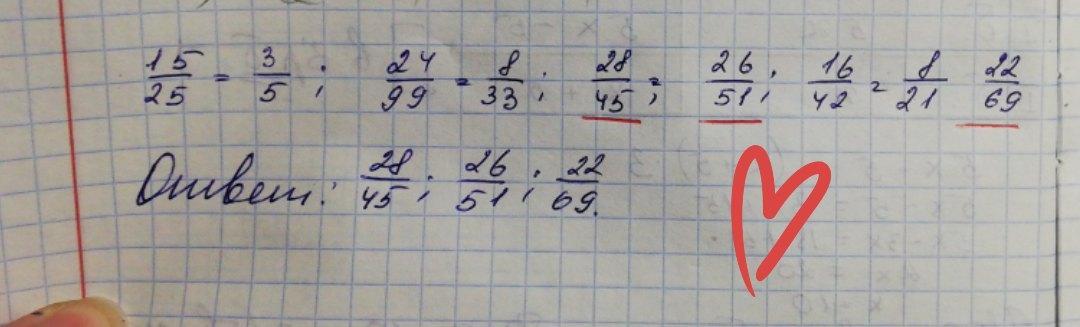 15/25 = 3/5 ; 24/99 = 8/33 ; 28/45 ; 26/51 ; 16/42 = 8/21 22/69
Ответ: 28/45 ; 26/51 ; 22/69.